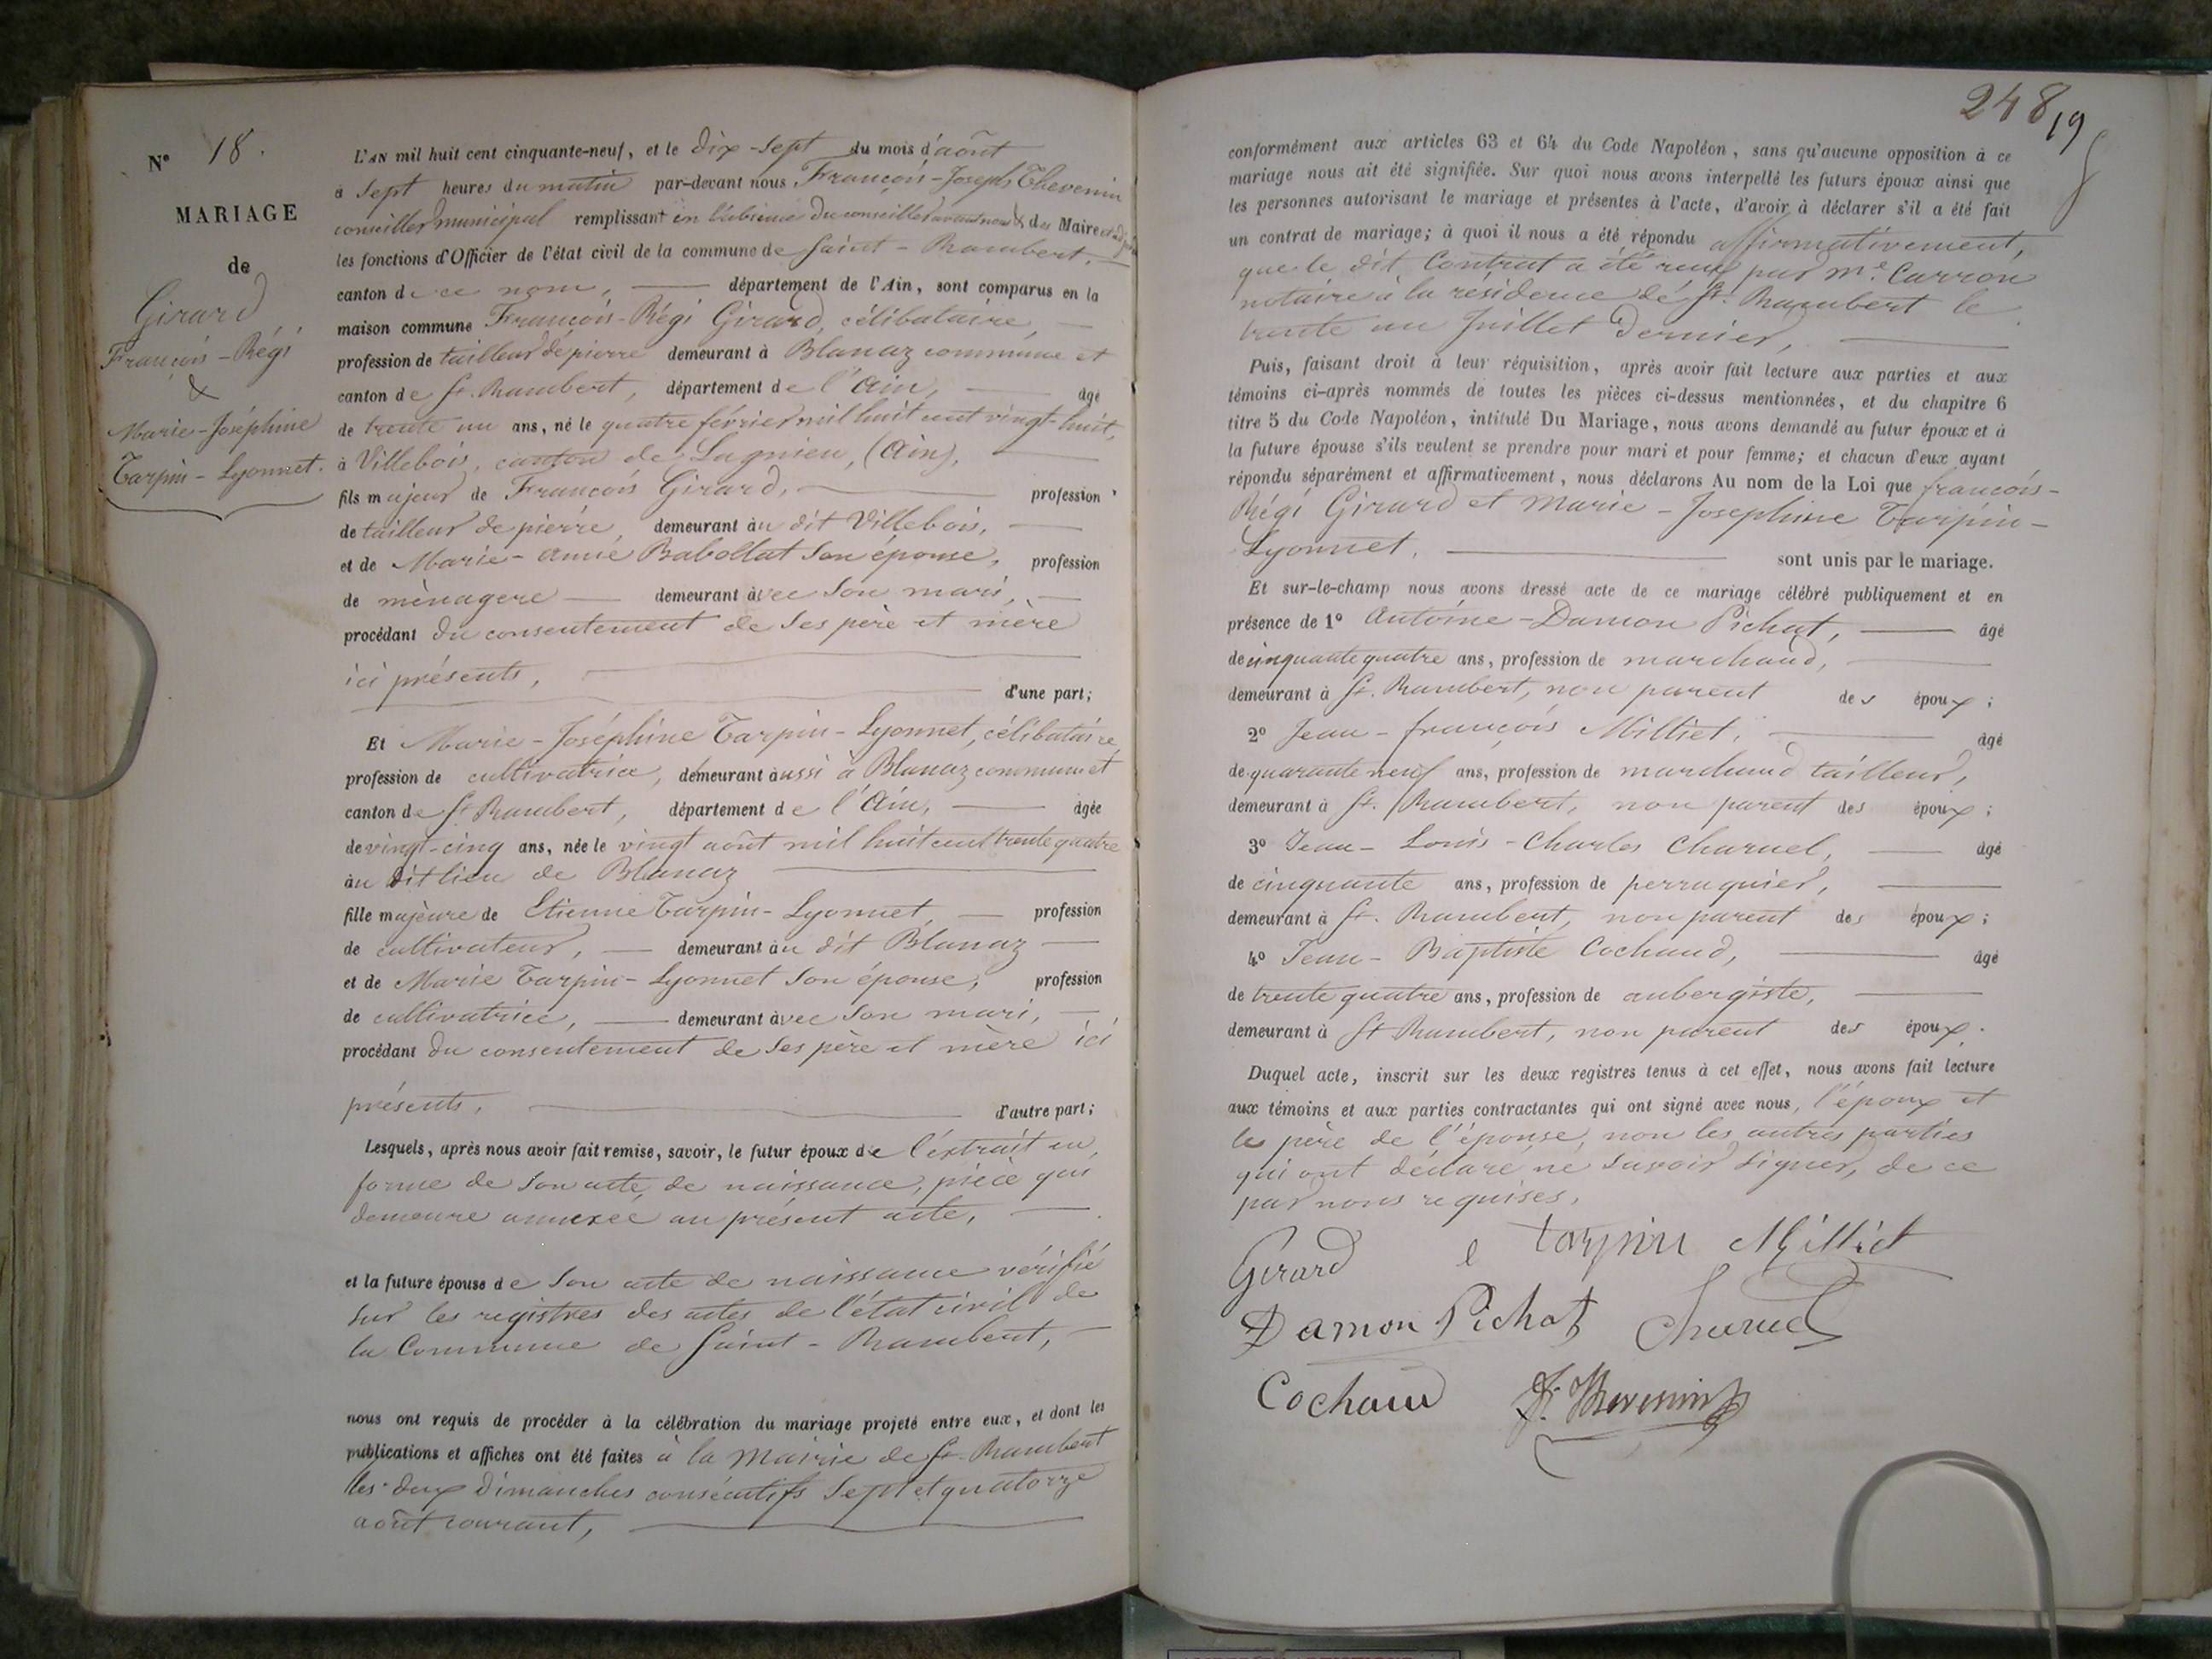 N° 18.
MARIAGE
de
Girard
François-Régi
&
Marie-Joséphine
Tarpin-Lyonnet.
L'AN mil huit cent cinquante-neuf, et le dix-sept du mois d'août
à sept heures du matin par-devant nous François-Joseph Thevenin
conseiller municipal remplissant en l'absence du conseiller avant nous & des Maire et adjoint
les fonctions d'Officier de l'état civil de la commune de Saint-Rambert,
canton de ce nom, département de l'Ain, sont comparus en la
maison commune François-Régi Girard, célibataire,
profession de tailleur de pierre demeurant à Blanaz commune et
canton de St. Rambert, département de l'Ain, âgé
de trente un ans, né le quatre février mil huit cent vingt-huit,
à Villebois, canton de Lagnieu, (Ain),
fils majeur de François Girard, profession
de tailleur de pierre, demeurant au dit Villebois,
et de Marie-Anne Babollat son épouse, profession
de ménagere demeurant avec son mari,
procédant du consentement de ses père et mère
ici présents,
d'une part;
Et Marie-Joséphine Tarpin-Lyonnet, célibataire,
profession de cultivatrice, demeurant aussi à Blanaz commune et
canton de St Rambert, département de l'Ain, âgée
de vingt-cinq ans, née le vingt août mil huit cent trente quatre
au dit lieu de Blanaz
fille majeure de Etienne Tarpin-Lyonnet, profession
de cultivateur, demeurant au dit Blanaz
et de Marie Tarpin-Lyonnet son épouse, profession
de cultivatrice, demeurant avec son mari,
procédant du consentement de ses père et mère ici
présents,
d'autre part;
Lesquels, après nous avoir fait remise, savoir, le futur époux de l'extrait en
forme de son acte de naissance, pièce qui
demeure annexée au présent acte,
et la future épouse de son acte de naissance vérifié
sur les registres des actes de l'état civil de
la Commune de Saint-Rambert,
nous ont requis de procéder à la célébration du mariage projeté entre eux, et dont les
publications et affiches ont été faites à la Mairie de St. Rambert
les deux dimanches consécutifs sept et quatorze
août courant,
248
19
conformément aux articles 63 et 64 du Code Napoléon, sans qu'aucune opposition à ce
mariage nous ait été signifiée. Sur quoi nous avons interpellé les futurs époux ainsi que
les personnes autorisant le mariage et présentes à l'acte, d'avoir à déclarer s'il a été fait
un contrat de mariage; à quoi il nous a été répondu affirmativement,
que le dit Contrat a été reçu par Me. Carron
notaire à la résidence de St. Rambert le
trente un Juillet dernier,
Puis, faisant droit à leur réquisition, après avoir fait lecture aux parties et aux
témoins ci-après nommés de toutes les pièces ci-dessus mentionnées, et du chapitre 6
titre 5 du Code Napoléon, intitulé Du Mariage, nous avons demandé au futur époux et à
la future épouse s'ils veulent se prendre pour mari et pour femme; et chacun d'eux ayant
répondu séparément et affirmativement, nous déclarons Au nom de la Loi que françois-
Régi Girard et Marie-Josephine Tarpin-
Lyonnet, sont unis par le mariage.
Et sur-le-champ nous avons dressé acte de ce mariage célébré publiquement et en
présence de 1° Antoine-Damon Pichat, âgé
de cinquante quatre ans, profession de marchand,
demeurant à St. Rambert, non parent des époux;
2° Jean-françois Milliet, âgé
de quarante neuf ans, profession de marchand tailleur,
demeurant à St. Rambert, non parent des époux;
3° Jean-Louis-Charles Charuel, âgé
de cinquante ans, profession de perruquier,
demeurant à St. Rambert, non parent des époux;
4° Jean-Baptiste Cochaud, âgé
de trente quatre ans, profession de aubergiste,
demeurant à St Rambert, non parent des époux.
Duquel acte, inscrit sur les deux registres tenus à cet effet, nous avons fait lecture
aux témoins et aux parties contractantes qui ont signé avec nous, l'époux et
le père de l'épouse, non les autres parties
qui ont déclaré ne savoir signer, de ce
par nous requises,
Girard e tarpin Milliet
Damon Pichat Charuel
Cochaud F. Thevenin